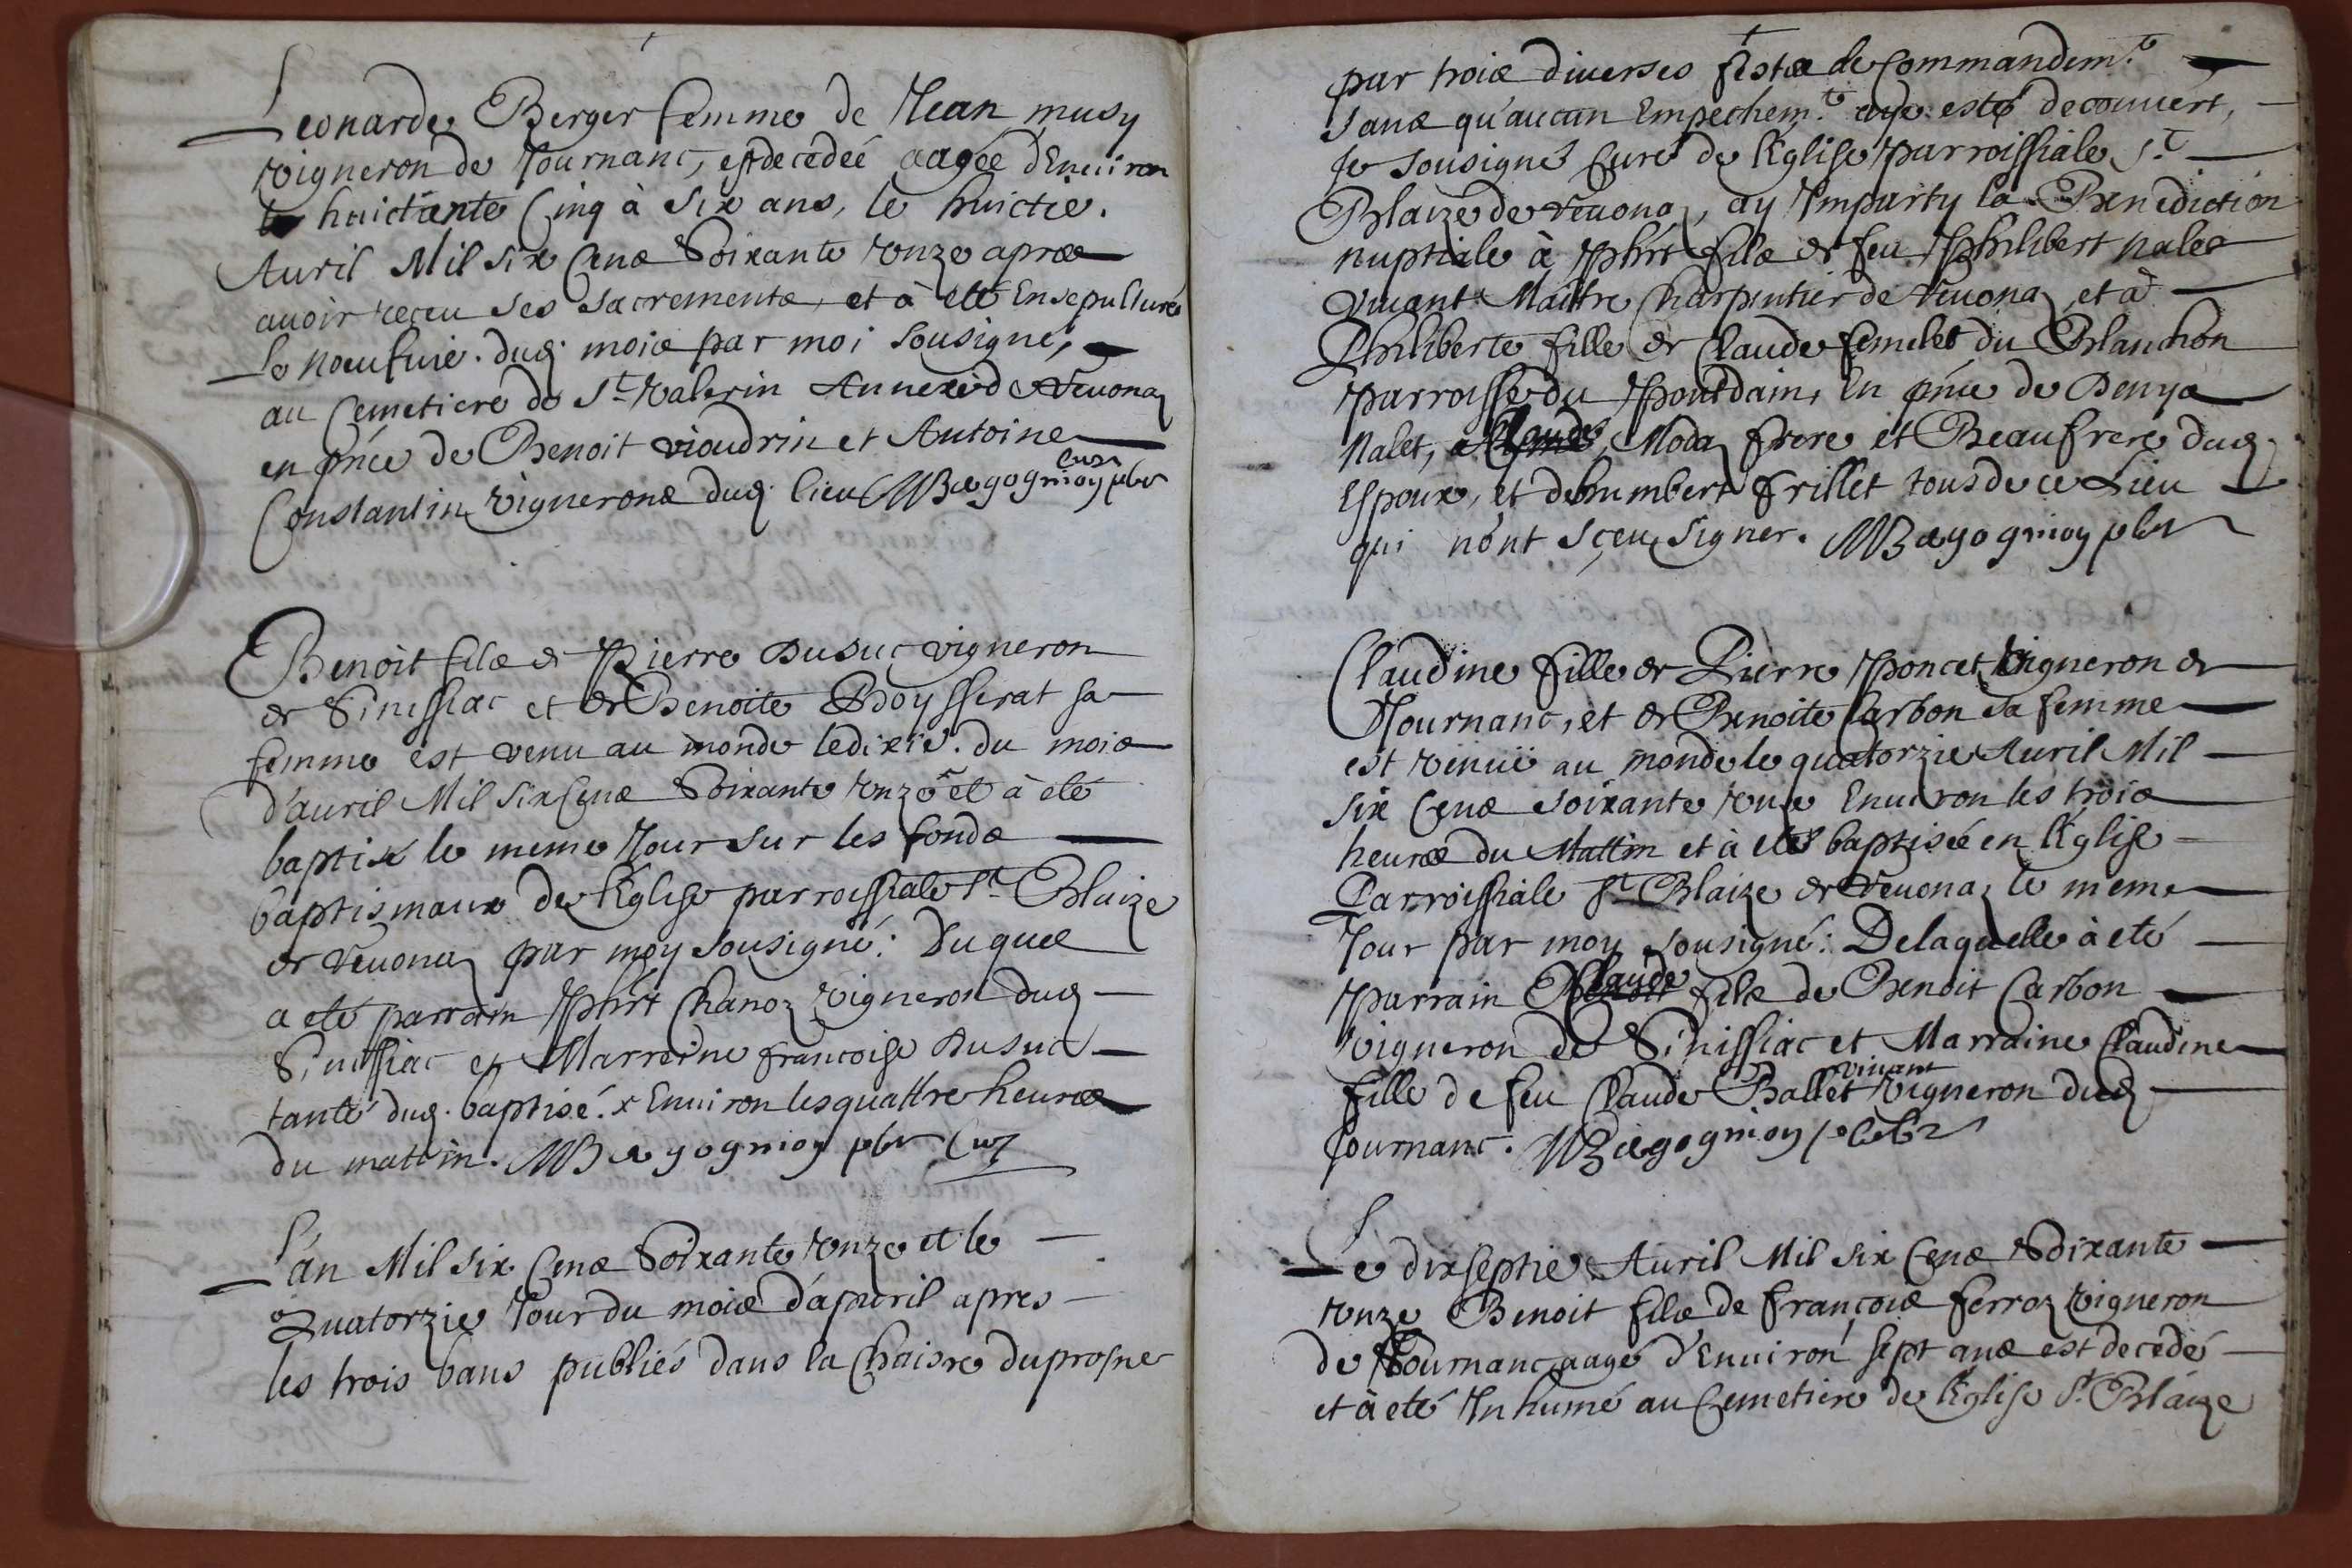 Leonarde Berger femme de Jean musy
vigneron de Journanc, est decedeé aagée d'Enuiron
huictante Cinq à Six ans, le huictie.
Auril Mil six Cens Soixante vnze apres
auoir receu ses sacrements, et à eté Ensepulturé
le noeufuie. dud. mois par moi sousigné,
au Cemetiere de St. Valerin Annexe de Veuonaz
en pnce de Benoit viaudrin et Antoine
Constantin vignerons dud. lieu MBegogmoy pbr Curé
Benoit fils de Pierre Dusuc vigneron
de Sinissiac et de Benoite Boysserat sa
femme est venu au monde le dixie. du mois
d'auril Mil six Cens Soixante vnze et à eté
baptisé le meme Jour sur les fonds
baptismaux de l'Eglise parroissiale St. Blaize
de Veuonaz par moy sousigné: Duquel
a eté parrain Phirt Chanoz vigneron dud
Sinissiac et Marreine francoise Dusuc
tante dud. baptisé. x Enuiron les quattre heures
du mattin. MBegogmoy pbr Curé
L'an Mil six Cens Soixante vnze et le
Quatorzie Jour du mois d'apuril apres
les trois bans publiés dans la Chaisre du prosne
par trois diuerses festes de Commandemt.
sans qu'aucun Empechemt. aye esté decouuert,
Je sousigné Curé de l'Eglise Parroissiale St.
Blaize de Veuonaz, ay Imparty la Benediction
nuptiale à Phirt fils de feu Philibert nalet
viuant Maittre Charpentier de Veuonaz et à
Philiberte fille de Claude femelet du Blanchon
Parroisse du Pontdain, En pnce de Denys
Nalet, Claude Modaz frere et Beaufrere dud.
Espoux, et de humbert frillet tous de ce Lieu
qui n'ont sçeu signer. MBegogmoy pbr
Claudine fille de Pierre Poncet vigneron de
Journanc, et de Benoite Carbon sa femme
est venuë au monde le quatorzie Auril Mil
six Cens soixante vnze Enuiron les trois
heures du Mattin et à eté baptisée en l'Eglise
Parroissiale St. Blaize de Veuonaz le meme
Jour par moy sousigné: De laquelle à eté
Parrain Claude fils de Benoit Carbon
vigneron de Sinissiac et Marraine Claudine
fille de feu Claude Ballet viuant vigneron dud
Journanc. MBegogmoy pbr
Le dixseptie Auril Mil six Cens Soixante
vnze Benoit fils de françois ferroz vigneron
de Journanc aagé d'Enuiron sept ans est decedé
et à eté Inhumé au Cemetiere de l'Eglise St. Blaize